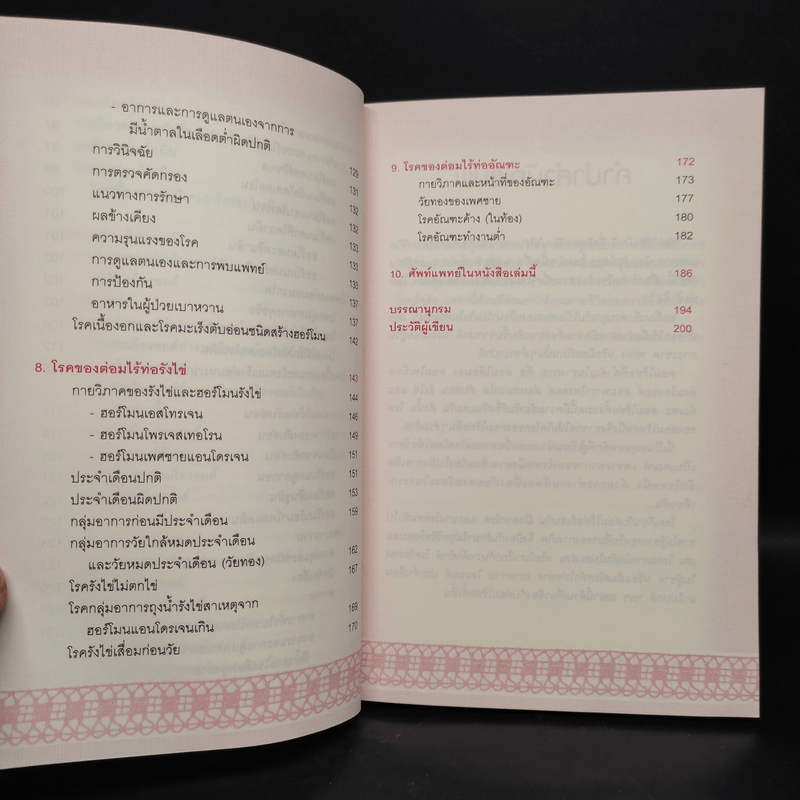 - อาการและการดูแลตนเองจากการ
มีน้ำตาลในเลือดต่ำผิดปกติ 129
การวินิจฉัย 131
การตรวจคัดกรอง 132
แนวทางการรักษา 132
ผลข้างเคียง 133
ความรุนแรงของโรค 133
การดูแลตนเองและการพบแพทย์ 133
การป้องกัน 137
อาหารในผู้ป่วยเบาหวาน 137
โรคเนื้องอกและโรคมะเร็งตับอ่อนชนิดสร้างฮอร์โมน 142
8. โรคของต่อมไร้ท่อรังไข่ 143
กายวิภาคของรังไข่และฮอร์โมนรังไข่ 144
- ฮอร์โมนเอสโทรเจน 146
- ฮอร์โมนโพรเจสเทอโรน 149
- ฮอร์โมนเพศชายแอนโดรเจน 151
ประจำเดือนปกติ 151
ประจำเดือนผิดปกติ 153
กลุ่มอาการก่อนมีประจำเดือน 159
กลุ่มอาการวัยใกล้หมดประจำเดือน
และวัยหมดประจำเดือน (วัยทอง) 162
โรครังไข่ไม่ตกไข่ 167
โรคกลุ่มอาการถุงน้ำรังไข่สาเหตุจาก
ฮอร์โมนแอนโดรเจนเกิน 169
โรครังไข่เสื่อมก่อนวัย 170
9. โรคของต่อมไร้ท่ออัณฑะ 172
กายวิภาคและหน้าที่ของอัณฑะ 173
วัยทองของเพศชาย 177
โรคอัณฑะค้าง (ในท้อง) 180
โรคอัณฑะทำงานต่ำ 182
10. ศัพท์แพทย์ในหนังสือเล่มนี้ 186
บรรณานุกรม 194
ประวัติผู้เขียน 200